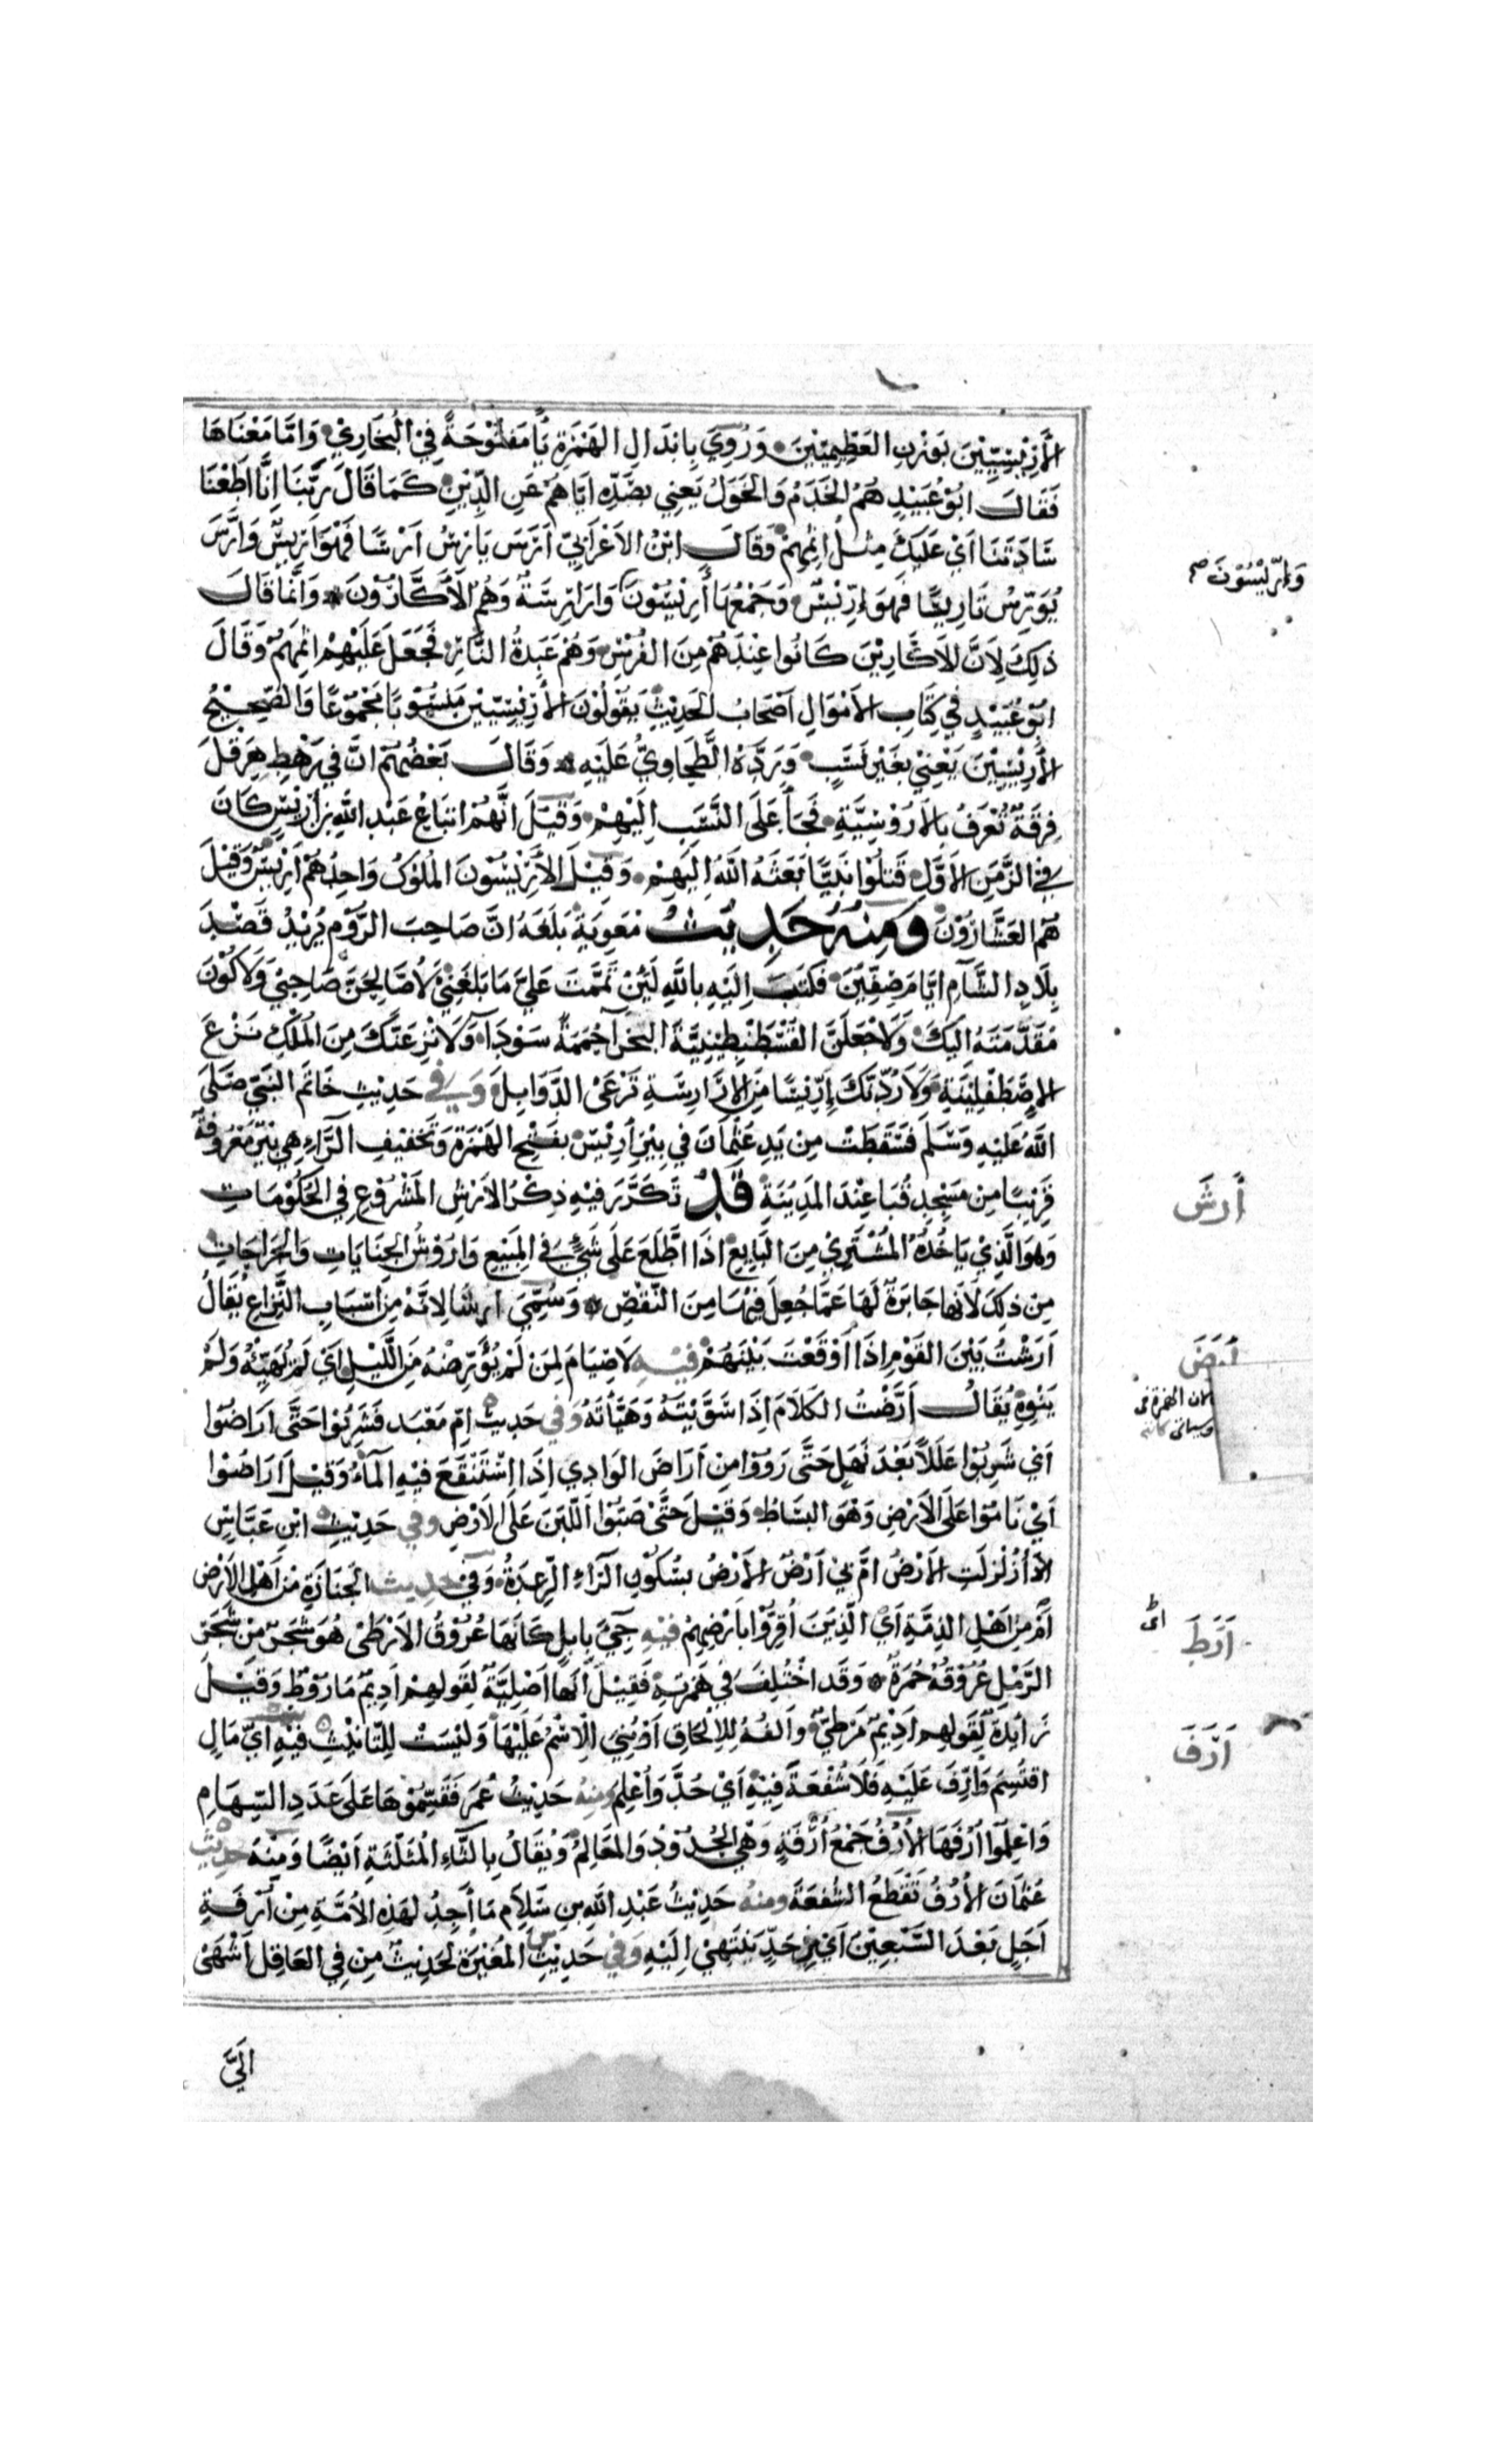 الأَرِيْسِيِّيْنَ بوزن العَظِيمِيِّينَ وَرُوِيَ بابدال الهَمْزَةِ يًا مَفْتُوْحَةً فِي البُخَارِي وَامَّا مَعْنَاهَا
فَقَالَ ابُوْ عُبَيْدٍ هُمُ الخَدَمُ وَالخَوَلُ يَعْنِي بصَدِّه ايّاهُمْ عَنِ الدِّيْنِ كَمَا قَالَ رَبَّنَا اِنَّا اَطَعْنَا
سَادَتَنَا اَيْ عَلَيْكَ مِثْلُ اثْمِهِمْ وَقَالَ ابْنُ الاَعْرَابِيّ اَرَسَ يَارِسُ اَرْسًا فَهُوَ اَرِيسٌ وَاَرَّسَ
يُوَرِّسُ تَارِيسًا فَهُوَ اِرِّيْسٌ وَجَمْعُهَا أَرِيْسُوْنَ وَاَرَارِسَةٌ وَهُمُ الاَكَّارُوْنَ وَانَّمَا قَالَ
وَاِرّيْسُوْنَ صح
ذٰلِكَ لِاَنَّ الاَكَّارِيْنَ كَانُوا عِنْدَهُمْ مِنَ الفُرْسِ وَهُمْ عَبَدَةُ النَّارِ فَجَعَلَ عَلَيْهِمْ اثْمَهُمْ وَقَالَ
ابُوْ عُبَيْدٍ في كِتَابِ الاَمْوَالِ اَصْحَابُ الحَدِيْثِ يَقُوْلُوْنَ الأَرِيْسِيّيْنَ مَنْسُوْبًا مَجْمُوْعًا وَالصَّحِيْحُ
الأَرِيْسِيْنَ يَعْنِيْ بغَيْرِ نَسَبٍ وَرَدَّهُ الطَّحَاوِيُّ عَلَيْهِ وَقَالَ بَعْضُهُمْ انَّ فِي رَهْطِ هِرَقْلَ
فِرقَةً تُعْرَفُ بِالاَرُوْسِيَّةِ فَجَأَ عَلَى النَّسَبِ اِلَيْهِمْ وَقِيْلَ انَّهُمْ اتْبَاعُ عَبْدِ اللهِ بْنِ اَرِيْسٍ كَانَ
فِي الزَّمَنِ الاَوَّلِ قَتَلُوْا نَبِيًّا بَعَثَهُ اللهُ اِلَيْهِمْ وَقِيْلَ الاَرِيْسُوْنَ المُلُوكُ وَاحِدُهُمْ اَرِيْسٌ وَقِيْلَ
هُمُ العَشَّارُوْنَ وَمِنْهُ حَدِيْثُ مُعٰوِيَةَ بَلَغَهُ انَّ صَاحِبَ الرُّوْمِ يُرِيْدُ قَصْدَ
بِلَادِ الشَّامِ ايَّامَ صِفِّيْنَ فَكَتَبَ اِلَيْهِ بِاللهِ لَئِنْ تَمَّمْتَ عَلىَ مَا بَلَغَنِيْ لَأُصَالِحَنَّ صَاحِبِيْ وَلَاكُوْنَنَّ
مُقَدَّمَتَهُ اليْكَ وَلَاَجْعَلَنَّ القُسْطَنْطِيْنِيَّةَ البَخْرَآءَ حُمَمَةً سَوْدَآءَ وَلَانْزِعَنَّكَ مِنَ المُلْكِ نَزْعَ
الاِصْطَفْلِيْنَةِ وَلَارُدَّنَّكَ اِرِّيْسًا مِنَ الاَرَارِسَةِ تَرْعَى الدَّوَابِلَ وَفي حَدِيْثِ خَاتَمِ النَّبِيّ صَلَّى
اللهُ عَلَيْهِ وَسَلَّمَ فَسَقَطَتْ مِنْ يَدِ عُثْمَانَ في بِيْرِ اَرِيْسَ بفَتْحِ الهَمْزَةِ وَتَخْفِيْفِ الرَّاءِ هِيَ بِيْرٌ مَعْرُوفَةٌ
قَرِيْبًا مِن مَسْجِدِ قُبَا عِنْدَ المَدِيْنَةِ قَدْ تَكَرَّرَ فيهِ ذِكْرُ الاَرْشِ المَشْرُوْعِ فِي الحُكُوْمَاتِ
أَرشَ
وَهُوَ الَّذِيْ يَاخُذُهُ المُشْتَرِيْ مِنَ البَايِعِ اذَا اطَّلَعَ عَلَى شَيْءٍ فِي المَبِيْعِ وَاُرُوْشُ الجِنَايَاتِ وَالجِرَاحَاتِ
مِن ذٰلِكَ لَانَّهَا جَابِرَةٌ لَهَا عَمَّا حُصِلَ فِيْهَا مِنَ النَّقْصِ وَسُمِّيَ اَرشًا لِانَّهُ مِنْ اَسْبَابِ النِّزَاعِ يُقَالُ
اَرَشْتُ بَيْنَ القَوْمِ اِذَا اَوْقَعْتَ بَيْنَهُمْ فِيْهِ لَا صِيَامَ لِمَنْ لَمْ يُؤَرِّضْهُ مِنَ اللَّيْلِ اَيْ لَمْ يُهَيِّئْهُ وَلَمْ
أرَضَ
يَنْوِهِ يُقَالُ أَرَّضْتُ الكَلَامَ اِذَا سَوَّيْتَهُ وَهَيَّأْتَهُ وَفِي حَدِيْثِ امِّ مَعْبَد فَشَرِبُوْا حَتَّى اَرَاضُوْا
لان الهمزة في
وسياتي
اَيْ شَرِبُوْا عَلَلًا بَعْدَ نَهَلٍ حَتَّى رَوُوْا مِن اَرَاضَ الوَادِي اِذَا اسْتَنْقَعَ فِيْهِ المَآءُ وَقِيْلَ اَرَاضُوْا
اَيْ نَامُوْا عَلَى الاَرْضِ وَهُوَ البِسَاطُ وَقِيْلَ حَتَّى صَبُّوْا اللَّبَنَ عَلَى الاَرْضِ وَفي حَدِيْثِ ابْنِ عَبَّاسٍ
اَزُلْزِلَتِ الاَرْضُ امْ بِيْ اَرْضٌ الاَرْضُ بسُكُوْنِ الرَّاءِ الرِّعدَةُ وَفِي حَدِيْث الجَنَازَةِ مِنْ اَهْلِ الاَرْضِ
اَمْ مِنْ اَهْلِ الذِمَّةِ اَيِ الَّذِيْنَ اُقِرُّوْا بِاَرْضِهِمْ فِيْهِ جِيْءَ بِاِبِلٍ كَانَّهَا عُرُوْقُ الاَرْطٰى هُوَ شَجَرٌ مِنْ شَجَرِ
اَرَطَ
الرَّمْلِ عُرُوْقُهُ حُمْرَةٌ وَقَد اخْتُلِفَ في هَمْزَتِهِ فَقِيْلَ انَّهَا اَصْلِيَّةٌ لِقَولِهِمْ اَدِيْمٌ مَارُوْطٌ وَقِيْلَ
زَائِدَةٌ لِقَولِهِم اَدِيْمٌ مَرْطِيٌّ وَالفُهُ لِلاِلْحَاقِ اَوْ بُنِيَ الِاسْمُ عَلَيْهَا وَلَيْسَتْ لِلتَّانِيْثِ فِيْهِ اَيُّ مَالٍ
اَرَفَ
اقتُسِمَ وَاُرِّفَ عَلَيْهِ فَلَا شُفْعَةَ فِيْهِ اَيْ حُدَّ وَاُعْلِمَ وَمِنْهُ حَدِيْثُ عُمَرَ فَقَسَّمُوْهَا عَلَى عَدَدِ السِّهَامِ
وَاعْلَمُوْا اُرَفَهَا الأُرَفُ جَمْعُ أُرْفَةٍ وَهْيَ الحُدُوْدُ وَالمَعَالِمُ وَيُقَالُ بِالثَّاءِ المُثَلَّثَةِ اَيْضًا وَمِنْهُ حَدِيْثُ
عُثْمَانَ الأُرَفُ تَقْطَعُ الشُّفْعَةَ وَمِنْهُ حَدِيْثُ عَبْدِ اللهِ بنِ سَلَامٍ مَا أَجِدُ لهٰذِهِ الاُمَّةِ مِنْ أُرْفَةِ
اَجَلٍ بَعْدَ السَّبْعِيْنَ اَيْ مِنْ حَدٍّ يَنْتَهِيْ اِلَيْهِ وَفِي حَدِيْثِ المُغِيْرَةِ لَحَدِيْثٌ مِنْ فِي العَاقِلِ اَشْهٰى
اِلَيَّ